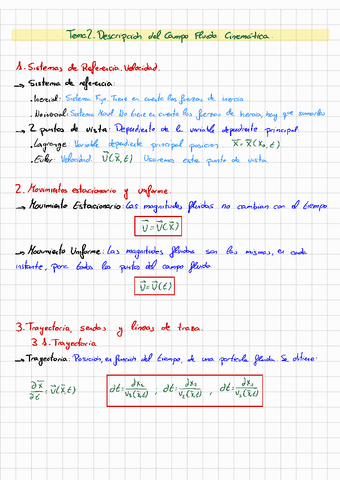 Tema 2. Descripción del Campo Fluido Cinemática.
1. Sistemas de Referencia. Velocidad.
→ Sistema de referencia:
- Inercial: Sistema Fijo. Tiene en cuenta las fuerzas de inercia
- No inercial: Sistema Movil. No tiene en cuenta las fuerzas de inercia, hay que sumarlas
→ 2 puntos de vista: Dependiente de la variable dependiente principal
- Lagrange: Variable dependiente principal posicion x̄ = x̄(x₀,t)
- Euler: Velocidad. v̄(x̄,t) Usaremos este punto de vista.
2. Movimientos estacionario y uniforme.
→ Movimiento Estacionario: Las magnitudes fluidas no cambian con el tiempo
v̄ = v̄(x̄)
→ Movimiento Uniforme: Las magnitudes fluidas son las mismas, en cada
instante, para todos los puntos del campo fluido.
v̄ = v̄(t)
3. Trayectoria, sendas y lineas de traza.
3.1. Trayectoria
→ Trayectoria: Posición, en función del tiempo, de una partícula fluida. Se obtiene:
∂x̄/∂t = v̄(x̄,t)